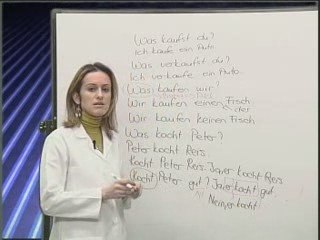 Was kaufst du?
Ich kaufe ein Auto.
Was verkaufst du?
Ich verkaufe ein Auto.
Was kaufen wir?
Wir kaufen einen Fisch
der
Wir kaufen keinen Fisch
Was kocht Peter?
Peter kocht Reis.
Kocht Peter Reis. Ja, er kocht Reis
Kocht Peter gut? Ja, er kocht gut
Nein, er kocht